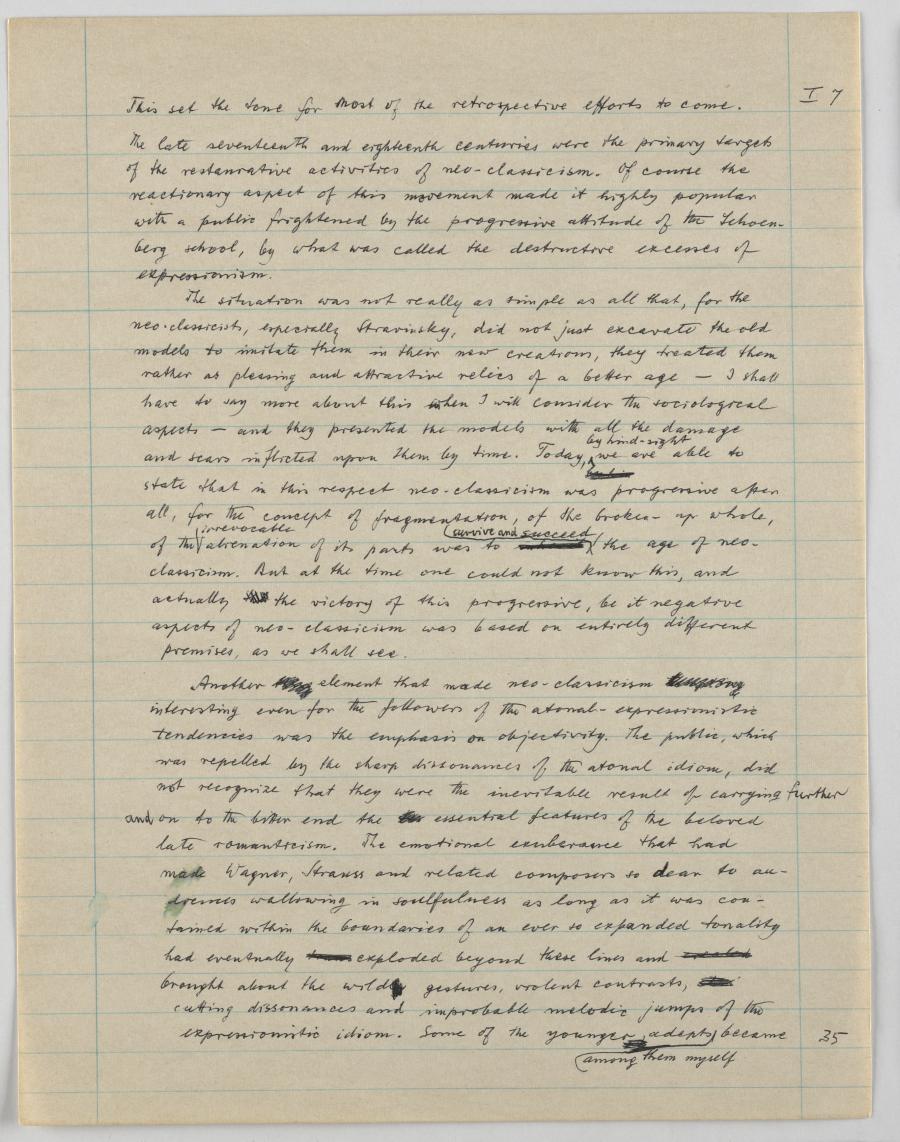 This set the tone for most of the retrospective efforts to come.
I 7
The late seventeenth and eighteenth centuries were the primary targets
of the restaurative activities of neo-classicism. Of course the
reactionary aspect of this movement made it highly popular
with a public frightened by the progressive attitude of the Schoen-
berg school, by what was called the destructive excesses of
expressionism.
The situation was not really as simple as all that, for the
neo-classicists, especially Stravinsky, did not just excavate the old
models to imitate them in their new creations, they treated them
rather as pleasing and attractive relics of a better age — I shall
have to say more about this when I will consider the sociological
aspects — and they presented the models with all the damage
by hind-sight
and scars inflicted upon them by time. Today, we are able to
state that in this respect neo-classicism was progressive after
all, for the concept of fragmentation, of the broken-up whole,
irrevocable survive and succeed
of the alienation of its parts was to the age of neo-
classicism. But at the time one could not know this, and
actually the victory of this progressive, be it negative
aspects of neo-classicism was based on entirely different
premises, as we shall see.
Another element that made neo-classicism
interesting even for the followers of the atonal-expressionistic
tendencies was the emphasis on objectivity. The public, which
was repelled by the sharp dissonances of the atonal idiom, did
not recognize that they were the inevitable result of carrying further
and on to the bitter end the essential features of the beloved
late romanticism. The emotional exuberance that had
made Wagner, Strauss and related composers so dear to au-
diences wallowing in soulfulness as long as it was con-
tained within the boundaries of an ever so expanded tonality
had eventually exploded beyond these lines and
brought about the wild gestures, violent contrasts,
cutting dissonances and improbable melodic jumps of the
expressionistic idiom. Some of the younger adepts became
35
among them myself